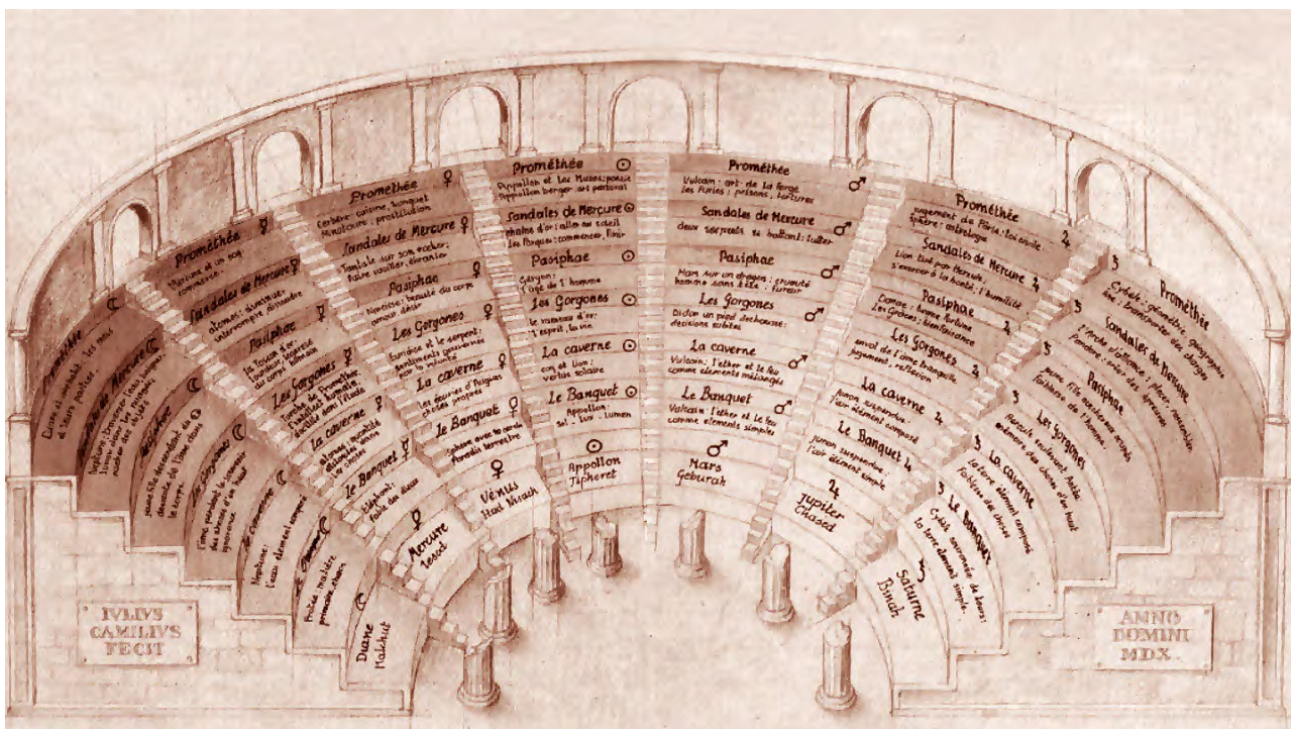 Prométhée
Diane et
et leurs
Mercure
Neptune:
Pasiphae
jeune fille descendant de
descente de l'âme dans
la terre
Les Gorgones
ignorance
La caverne
Neptune:
l'eau élément composé
Le Banquet
Protée matière
première chaos
Diane
Malchut
Prométhée
Mercure et un coq:
commerce
Sandales de Mercure
atomes: diminuer
interrompre dissoudre
Pasiphae
La toison d'or:
lourdeur
du corps humain
Les Gorgones
Torche de Prométhée
l'intellect humain
docilité dans l'étude
La caverne
atomes:
Le Banquet
Eléphant:
fable des dieux
Mercure
Iesod
Prométhée
Cerbère: cuisine, banquet
Minotaure: prostitution
Sandales de Mercure
Tantale sur son rocher:
faire vaciller, ébranler
Pasiphae
Narcisse: beauté du corps
amour désir
Les Gorgones
Euridice et le serpent:
sentiments gouvernés
par la volonté
La caverne
Les écuries d'Augias
choses propres
Le Banquet
Sphère avec 10 cercles
Paradis terrestre
Vénus
Hod Nisach
Prométhée
Appollon et les Muses: poésie
Appollon berger art pastoral
Sandales de Mercure
chaîne d'or: aller au soleil
Les Parques: commencer, finir
Pasiphae
Géryon:
l'âge de l'homme
Les Gorgones
le rameau d'or:
l'esprit, la vie
La caverne
coq et lion:
vertus solaire
Le Banquet
Appollon:
Sol - Lux - Lumen
Appollon
Tipheret
Prométhée
Vulcain: art de la forge
Les Furies: prisons, tortures
Sandales de Mercure
deux serpents se battant: lutter
Pasiphae
Mars sur un dragon: cruauté
homme sans tête: fureur
Les Gorgones
Didon un pied déchaussé:
décisions subites
La caverne
Vulcain: l'éther et le feu
comme éléments mélangés
Le Banquet
Vulcain: l'éther et le feu
comme éléments simples
Mars
Geburah
Prométhée
Jugement de Pâris: loi civile
Sphère: astrologie
Sandales de Mercure
Lion tué par Hercule:
s'exercer à la bonté: l'humilité
Pasiphae
Danae: bonne fortune
Les Grâces: bienfaisance
Les Gorgones
envol de l'âme tranquille
jugement, réflexion
La caverne
Junon suspendue:
l'air élément composé
Le Banquet
Junon suspendue:
l'air élément simple
Jupiter
Chased
Prométhée
Cybèle: géométrie, géographie
âne: transporter des charges
Sandales de Mercure
l'Arche d'alliance: placer, rassembler
Pandore: créer des
Pasiphae
jeune fille
faiblesse de l'homme
Les Gorgones
Hercule soulevant Antée
La caverne
la terre élément composé
faiblesse des choses
Le Banquet
Cybèle couronnée de tours:
la terre élément simple.
Saturne
Binah
IVLIVS
CAMILIVS
FECIT
ANNO
DOMINI
MDX